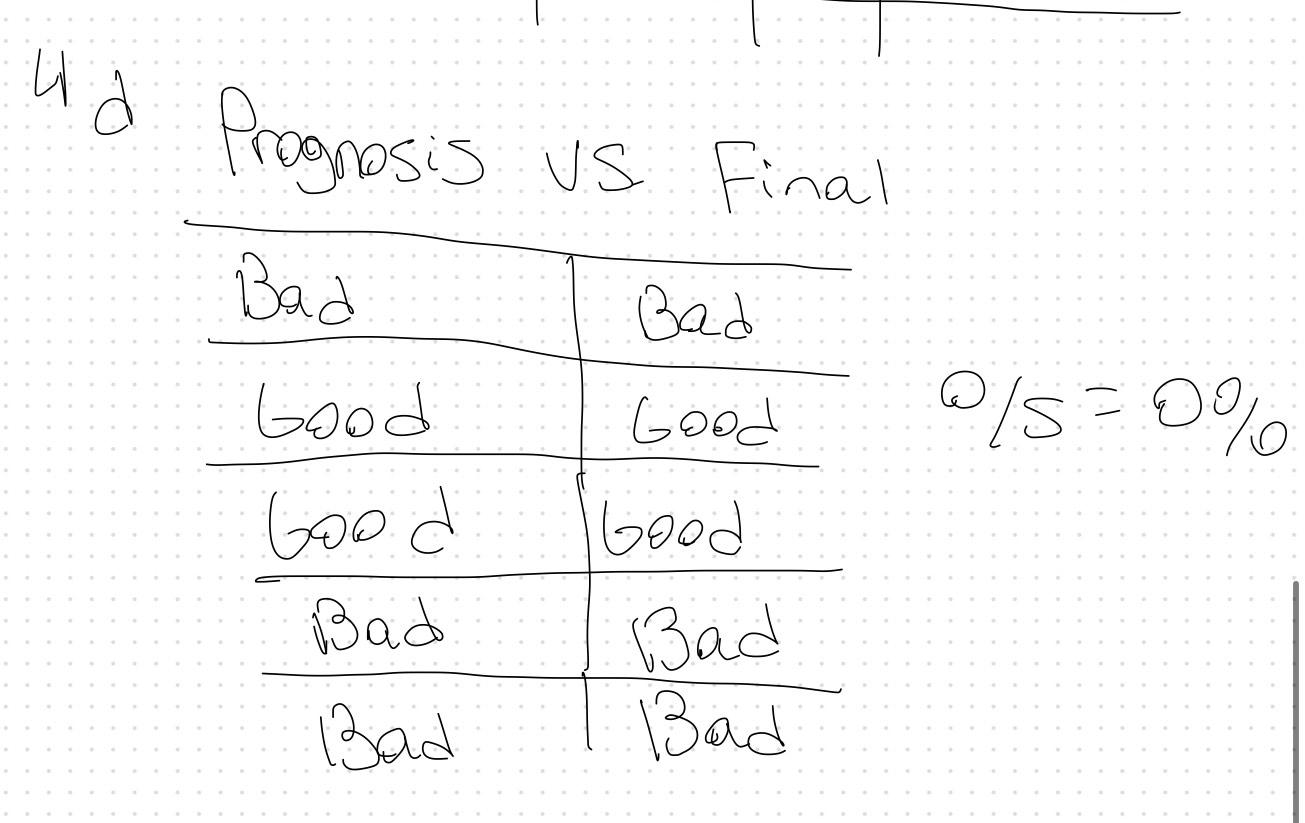 4d
Prognosis vs Final
Bad Bad
Good Good
0/5 = 0%
Good Good
Bad Bad
Bad Bad